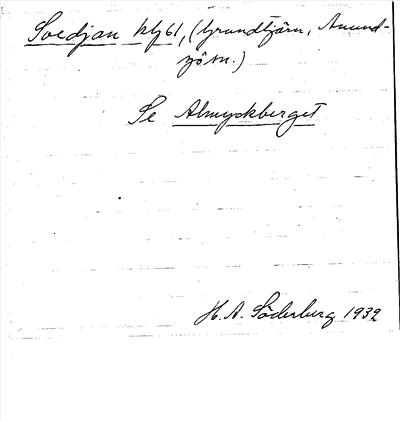 Svedjan klj 61, (Grundtjärn, Anund-
sjö sn.)
Se Almyckberget
H. A. Söderberg 1932